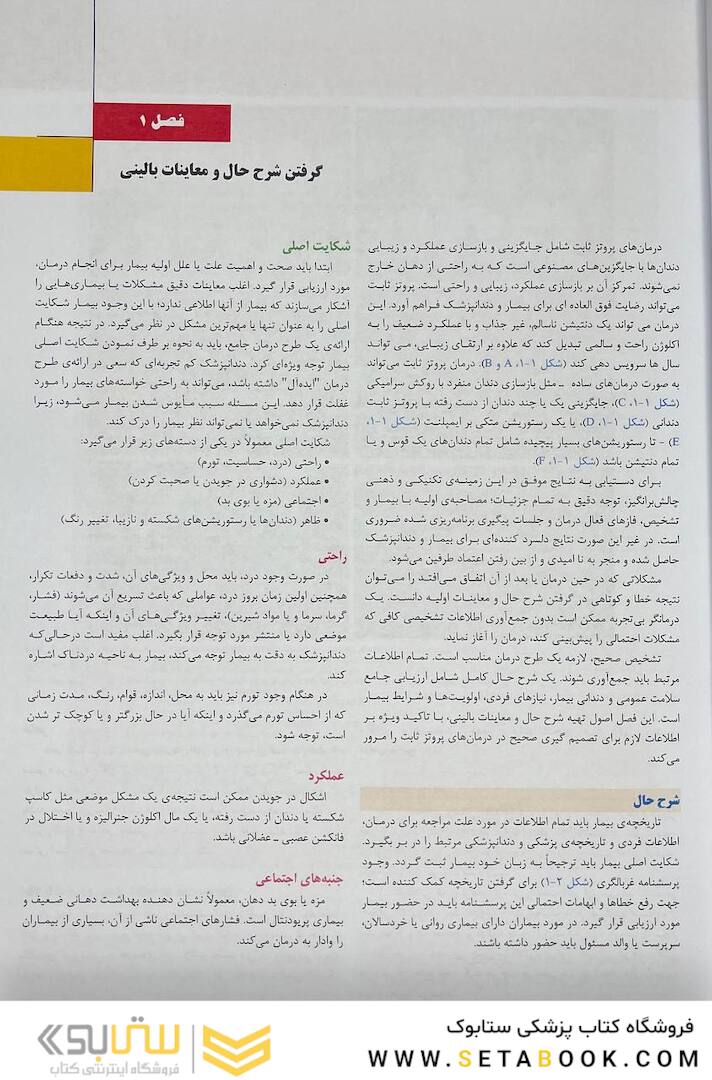 فصل ۱
گرفتن شرح حال و معاینات بالینی
درمان‌های پروتز ثابت شامل جایگزینی و بازسازی عملکرد و زیبایی
دندان‌ها با جایگزین‌های مصنوعی است که به راحتی از دهان خارج
نمی‌شوند. تمرکز آن بر بازسازی عملکرد، زیبایی و راحتی است. پروتز ثابت
می‌تواند رضایت فوق العاده ای برای بیمار و دندانپزشک فراهم آورد. این
درمان می تواند یک دنتیشن ناسالم، غیر جذاب و با عملکرد ضعیف را به
اکلوژن راحت و سالمی تبدیل کند که علاوه بر ارتقای زیبایی، می تواند
سال ها سرویس دهی کند (شکل ۱-۱، A و B). درمان پروتز ثابت می‌تواند
به صورت درمان‌های ساده ـ مثل بازسازی دندان منفرد با روکش سرامیکی
(شکل ۱-۱، C)، جایگزینی یک یا چند دندان از دست رفته با پروتز ثابت
دندانی (شکل ۱-۱، D)، یا یک رستوریشن متکی بر ایمپلنت (شکل ۱-۱،
E) - تا رستوریشن‌های بسیار پیچیده شامل تمام دندان‌های یک قوس و یا
تمام دنتیشن باشد (شکل ۱-۱، F).
برای دستیابی به نتایج موفق در این زمینه‌ی تکنیکی و ذهنی
چالش‌برانگیز، توجه دقیق به تمام جزئیات؛ مصاحبه‌ی اولیه با بیمار و
تشخیص، فازهای فعال درمان و جلسات پیگیری برنامه‌ریزی شده ضروری
است. در غیر این صورت نتایج دلسرد کننده‌ای برای بیمار و دندانپزشک
حاصل شده و منجر به نا امیدی و از بین رفتن اعتماد طرفین می‌شود.
مشکلاتی که در حین درمان یا بعد از آن اتفاق می‌افتد را می‌توان
نتیجه خطا و کوتاهی در گرفتن شرح حال و معاینات اولیه دانست. یک
درمانگر بی‌تجربه ممکن است بدون جمع‌آوری اطلاعات تشخیصی کافی که
مشکلات احتمالی را پیش‌بینی کند، درمان را آغاز نماید.
تشخیص صحیح، لازمه یک طرح درمان مناسب است. تمام اطلاعات
مرتبط باید جمع‌آوری شوند. یک شرح حال کامل شامل ارزیابی جامع
سلامت عمومی و دندانی بیمار، نیازهای فردی، اولویت‌ها و شرایط بیمار
است. این فصل اصول تهیه شرح حال و معاینات بالینی، با تاکید ویژه بر
اطلاعات لازم برای تصمیم گیری صحیح در درمان‌های پروتز ثابت را مرور
می‌کند.
شرح حال
تاریخچه‌ی بیمار باید تمام اطلاعات در مورد علت مراجعه برای درمان،
اطلاعات فردی و تاریخچه‌ی پزشکی و دندانپزشکی مرتبط را در بر بگیرد.
شکایت اصلی بیمار باید ترجیحاً به زبان خود بیمار ثبت گردد. وجود
پرسشنامه غربالگری (شکل ۲-۱) برای گرفتن تاریخچه کمک کننده است؛
جهت رفع خطاها و ابهامات احتمالی این پرسشنامه باید در حضور بیمار
مورد ارزیابی قرار گیرد. در مورد بیماران دارای بیماری روانی یا خردسالان،
سرپرست یا والد مسئول باید حضور داشته باشند.
شکایت اصلی
ابتدا باید صحت و اهمیت علت یا علل اولیه بیمار برای انجام درمان،
مورد ارزیابی قرار گیرد. اغلب معاینات دقیق مشکلات یا بیماری‌هایی را
آشکار می‌سازند که بیمار از آنها اطلاعی ندارد؛ با این وجود بیمار شکایت
اصلی را به عنوان تنها یا مهم‌ترین مشکل در نظر می‌گیرد. در نتیجه هنگام
ارائه‌ی یک طرح درمان جامع، باید به نحوه بر طرف نمودن شکایت اصلی
بیمار توجه ویژه‌ای کرد. دندانپزشک کم تجربه‌ای که سعی در ارائه‌ی طرح
درمان "ایده‌آل" داشته باشد، می‌تواند به راحتی خواسته‌های بیمار را مورد
غفلت قرار دهد. این مسئله سبب مأیوس شدن بیمار می‌شود، زیرا
دندانپزشک نمی‌خواهد یا نمی‌تواند نظر بیمار را درک کند.
شکایت اصلی معمولاً در یکی از دسته‌های زیر قرار می‌گیرد:
• راحتی (درد، حساسیت، تورم)
• عملکرد (دشواری در جویدن یا صحبت کردن)
• اجتماعی (مزه یا بوی بد)
• ظاهر (دندان‌ها یا رستوریشن‌های شکسته و نازیبا، تغییر رنگ)
راحتی
در صورت وجود درد، باید محل و ویژگی‌های آن، شدت و دفعات تکرار،
همچنین اولین زمان بروز درد، عواملی که باعث تسریع آن می‌شوند (فشار،
گرما، سرما و یا مواد شیرین)، تغییر ویژگی‌های آن و اینکه آیا طبیعت
موضعی دارد یا منتشر مورد توجه قرار بگیرد. اغلب مفید است درحالی‌که
دندانپزشک به دقت به بیمار توجه می‌کند، بیمار به ناحیه دردناک اشاره
کند.
در هنگام وجود تورم نیز باید به محل، اندازه، قوام، رنگ، مدت زمانی
که از احساس تورم می‌گذرد و اینکه آیا در حال بزرگتر و یا کوچک تر شدن
است، توجه شود.
عملکرد
اشکال در جویدن ممکن است نتیجه‌ی یک مشکل موضعی مثل کاسپ
شکسته یا دندان از دست رفته، یا یک مال اکلوژن جنرالیزه و یا اختلال در
فانکشن عصبی ـ عضلانی باشد.
جنبه‌های اجتماعی
مزه یا بوی بد دهان، معمولاً نشان دهنده بهداشت دهانی ضعیف و
بیماری پریودنتال است. فشارهای اجتماعی ناشی از آن، بسیاری از بیماران
را وادار به درمان می‌کند.
فروشگاه کتاب پزشکی ستابوک
WWW.SETABOOK.COM
ستابوک
فروشگاه اینترنتی کتاب